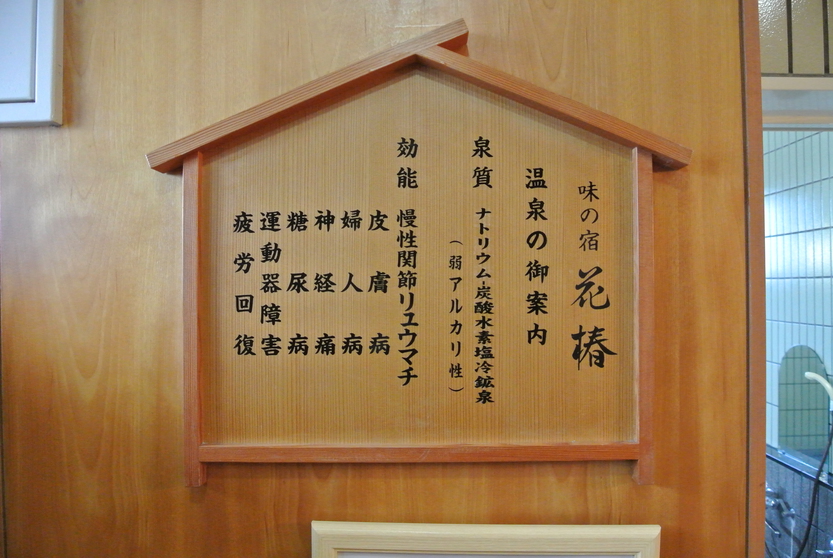 味の宿 花椿
温泉の御案内
泉質 ナトリウム-炭酸水素塩冷鉱泉
(弱アルカリ性)
効能 慢性関節リュウマチ
皮膚病
婦人病
神経痛
糖尿病
運動器障害
疲労回復